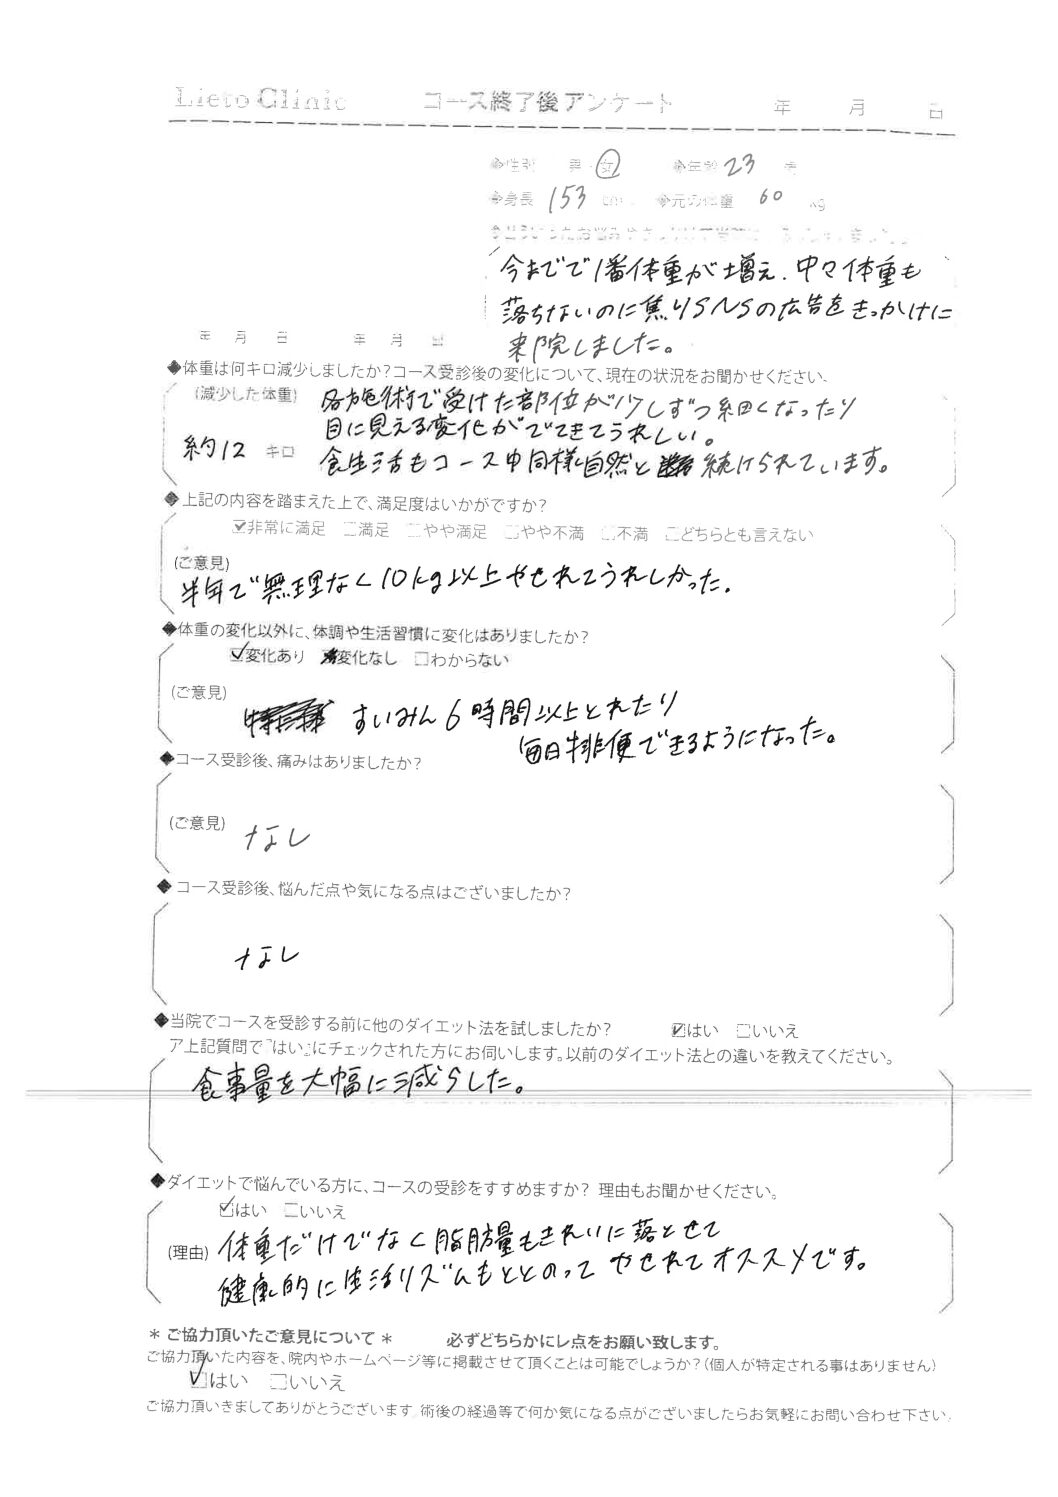 Lieto Clinic コース終了後アンケート 年 月 日
◆性別 男・女 ◆年齢 23 歳
◆身長 153 cm ◆元の体重 60 kg
今までで1番体重が増え、中々体重も
落ちないのに焦りSNSの広告をきっかけに
来院しました。
年 月 日 年 月 日
◆体重は何キロ減少しましたか?コース受診後の変化について、現在の状況をお聞かせください。
(減少した体重) 各施術で受けた部位が少しずつ細くなったり
目に見える変化がでてきてうれしい。
約12 キロ 食生活もコース中同様自然と 続けられています。
◆上記の内容を踏まえた上で、満足度はいかがですか?
☑非常に満足 □満足 □やや満足 □やや不満 □不満 □どちらとも言えない
(ご意見)
半年で無理なく10kg以上やせれてうれしかった。
◆体重の変化以外に、体調や生活習慣に変化はありましたか?
☑変化あり 変化なし □わからない
(ご意見)
すいみん6時間以上とれたり
毎日排便できるようになった。
◆コース受診後、痛みはありましたか?
(ご意見) なし
◆コース受診後、悩んだ点や気になる点はございましたか?
なし
◆当院でコースを受診する前に他のダイエット法を試しましたか? ☑はい □いいえ
ア上記質問で『はい』にチェックされた方にお伺いします。以前のダイエット法との違いを教えてください。
食事量を大幅に減らした。
◆ダイエットで悩んでいる方に、コースの受診をすすめますか? 理由もお聞かせください。
☑はい □いいえ
(理由) 体重だけでなく脂肪量もきれいに落とせて
健康的に生活リズムもととのってやせれてオススメです。
* ご協力頂いたご意見について * 必ずどちらかにレ点をお願い致します。
ご協力頂いた内容を、院内やホームページ等に掲載させて頂くことは可能でしょうか?(個人が特定される事はありません)
☑はい □いいえ
ご協力頂いきましてありがとうございます/術後の経過等で何か気になる点がございましたらお気軽にお問い合わせ下さい。